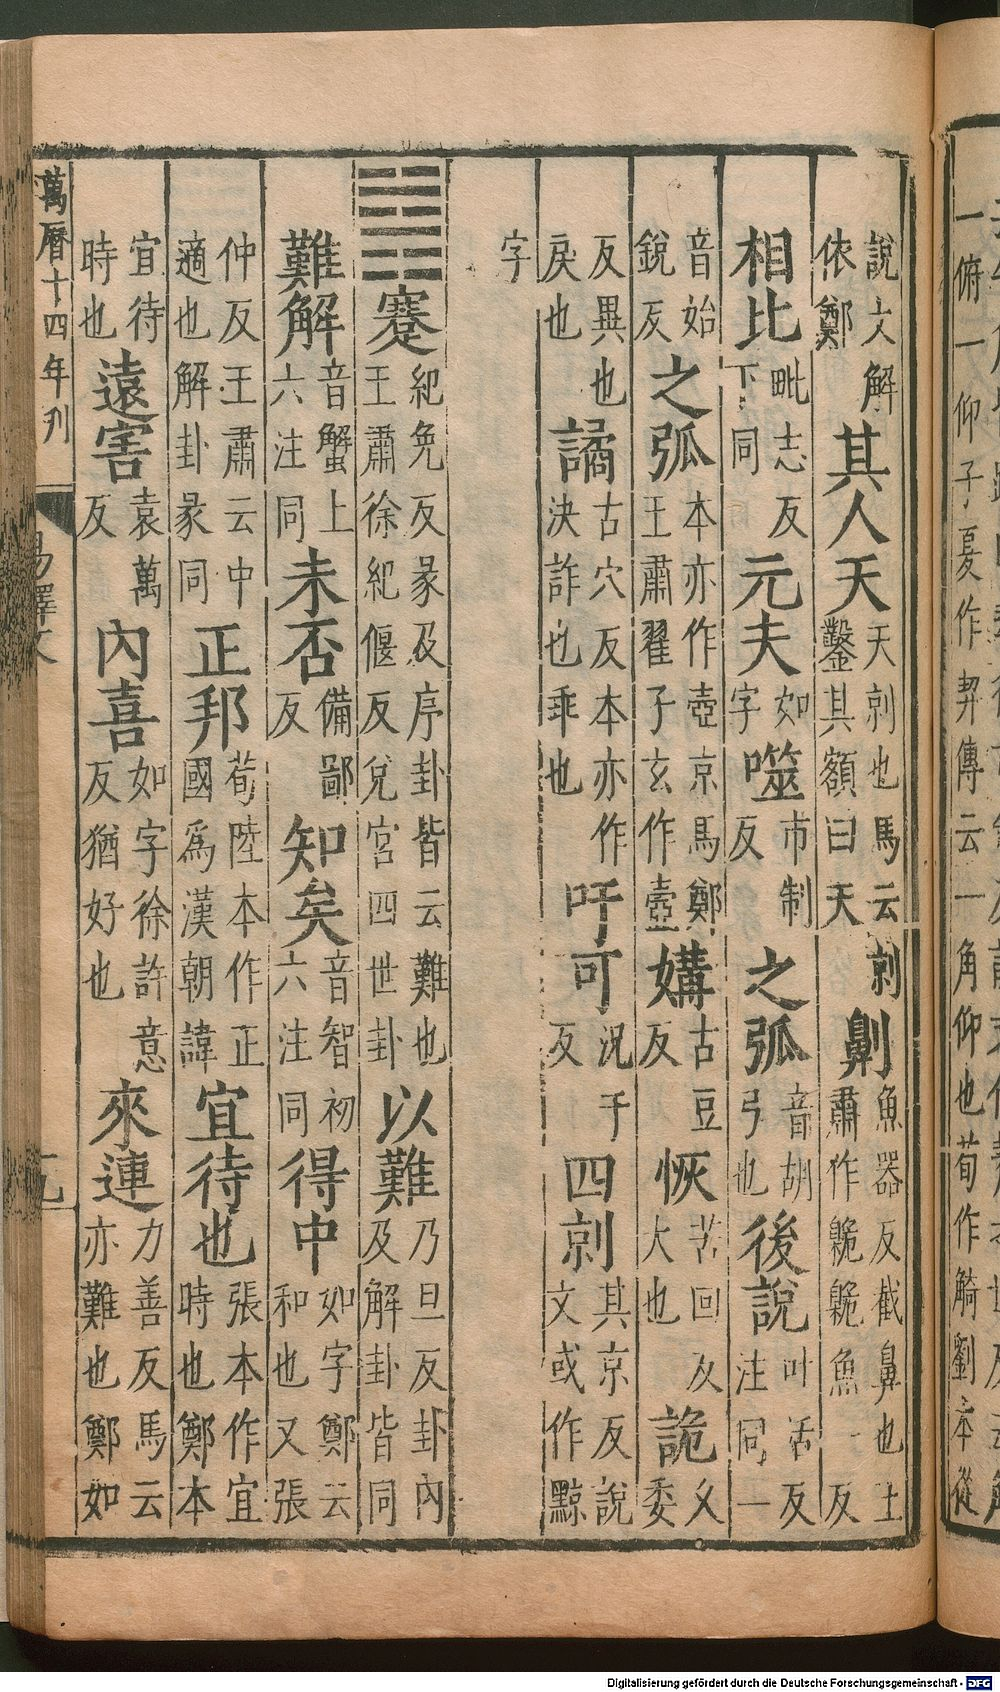 一俯一仰子夏作契傳云一角仰也荀作觭劉本從
說文解依鄭其人天天剠也馬云剠鑿其額曰天劓魚器反截鼻也王肅作臲臲魚一反
相比毗志反下同元夫如字噬市制反之弧音胡弓也後說吐活反注同一
音始銳反之弧本亦作壺京馬鄭王肅翟子玄作壺媾古豆反恢苦回反大也詭久委
反異也戾也譎古穴反本亦作決詐也乖也吁可況于反四剠其京反說文或作黥
字
䷦蹇紀免反彖及序卦皆云難也王肅徐紀偃反兌宮四世卦以難乃旦反卦內及解卦皆同
難解音蟹上六注同未否備鄙反知矣音智初六注同得中如字鄭云和也又張
仲反王肅云中適也解卦彖同正邦荀陸本作正國爲漢朝諱宜待也張本作宜時也鄭本
宜待時也遠害袁萬反內喜如字徐許意反猶好也來連力善反馬云亦難也鄭如
萬曆十四年刋
易釋文
Digitalisierung gefördert durch die Deutsche Forschungsgemeinschaft - DFG